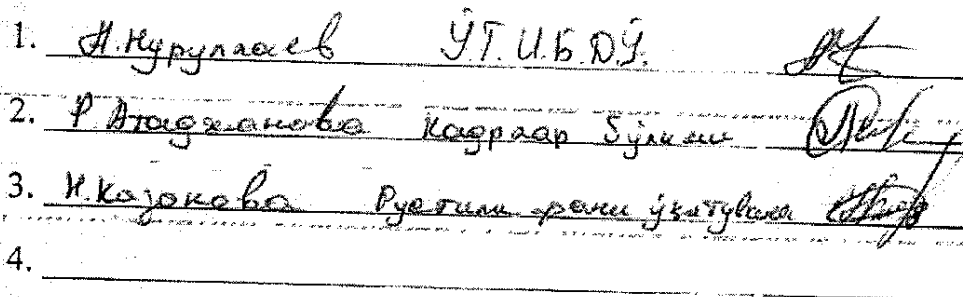 1. Н.Нуруллаев ЎТ.И.Б.Д.Ў.
2. Р Атаджанова Кадрлар бўлими
3. Н.Козокова Рус тили фани ўқитувчи
4.